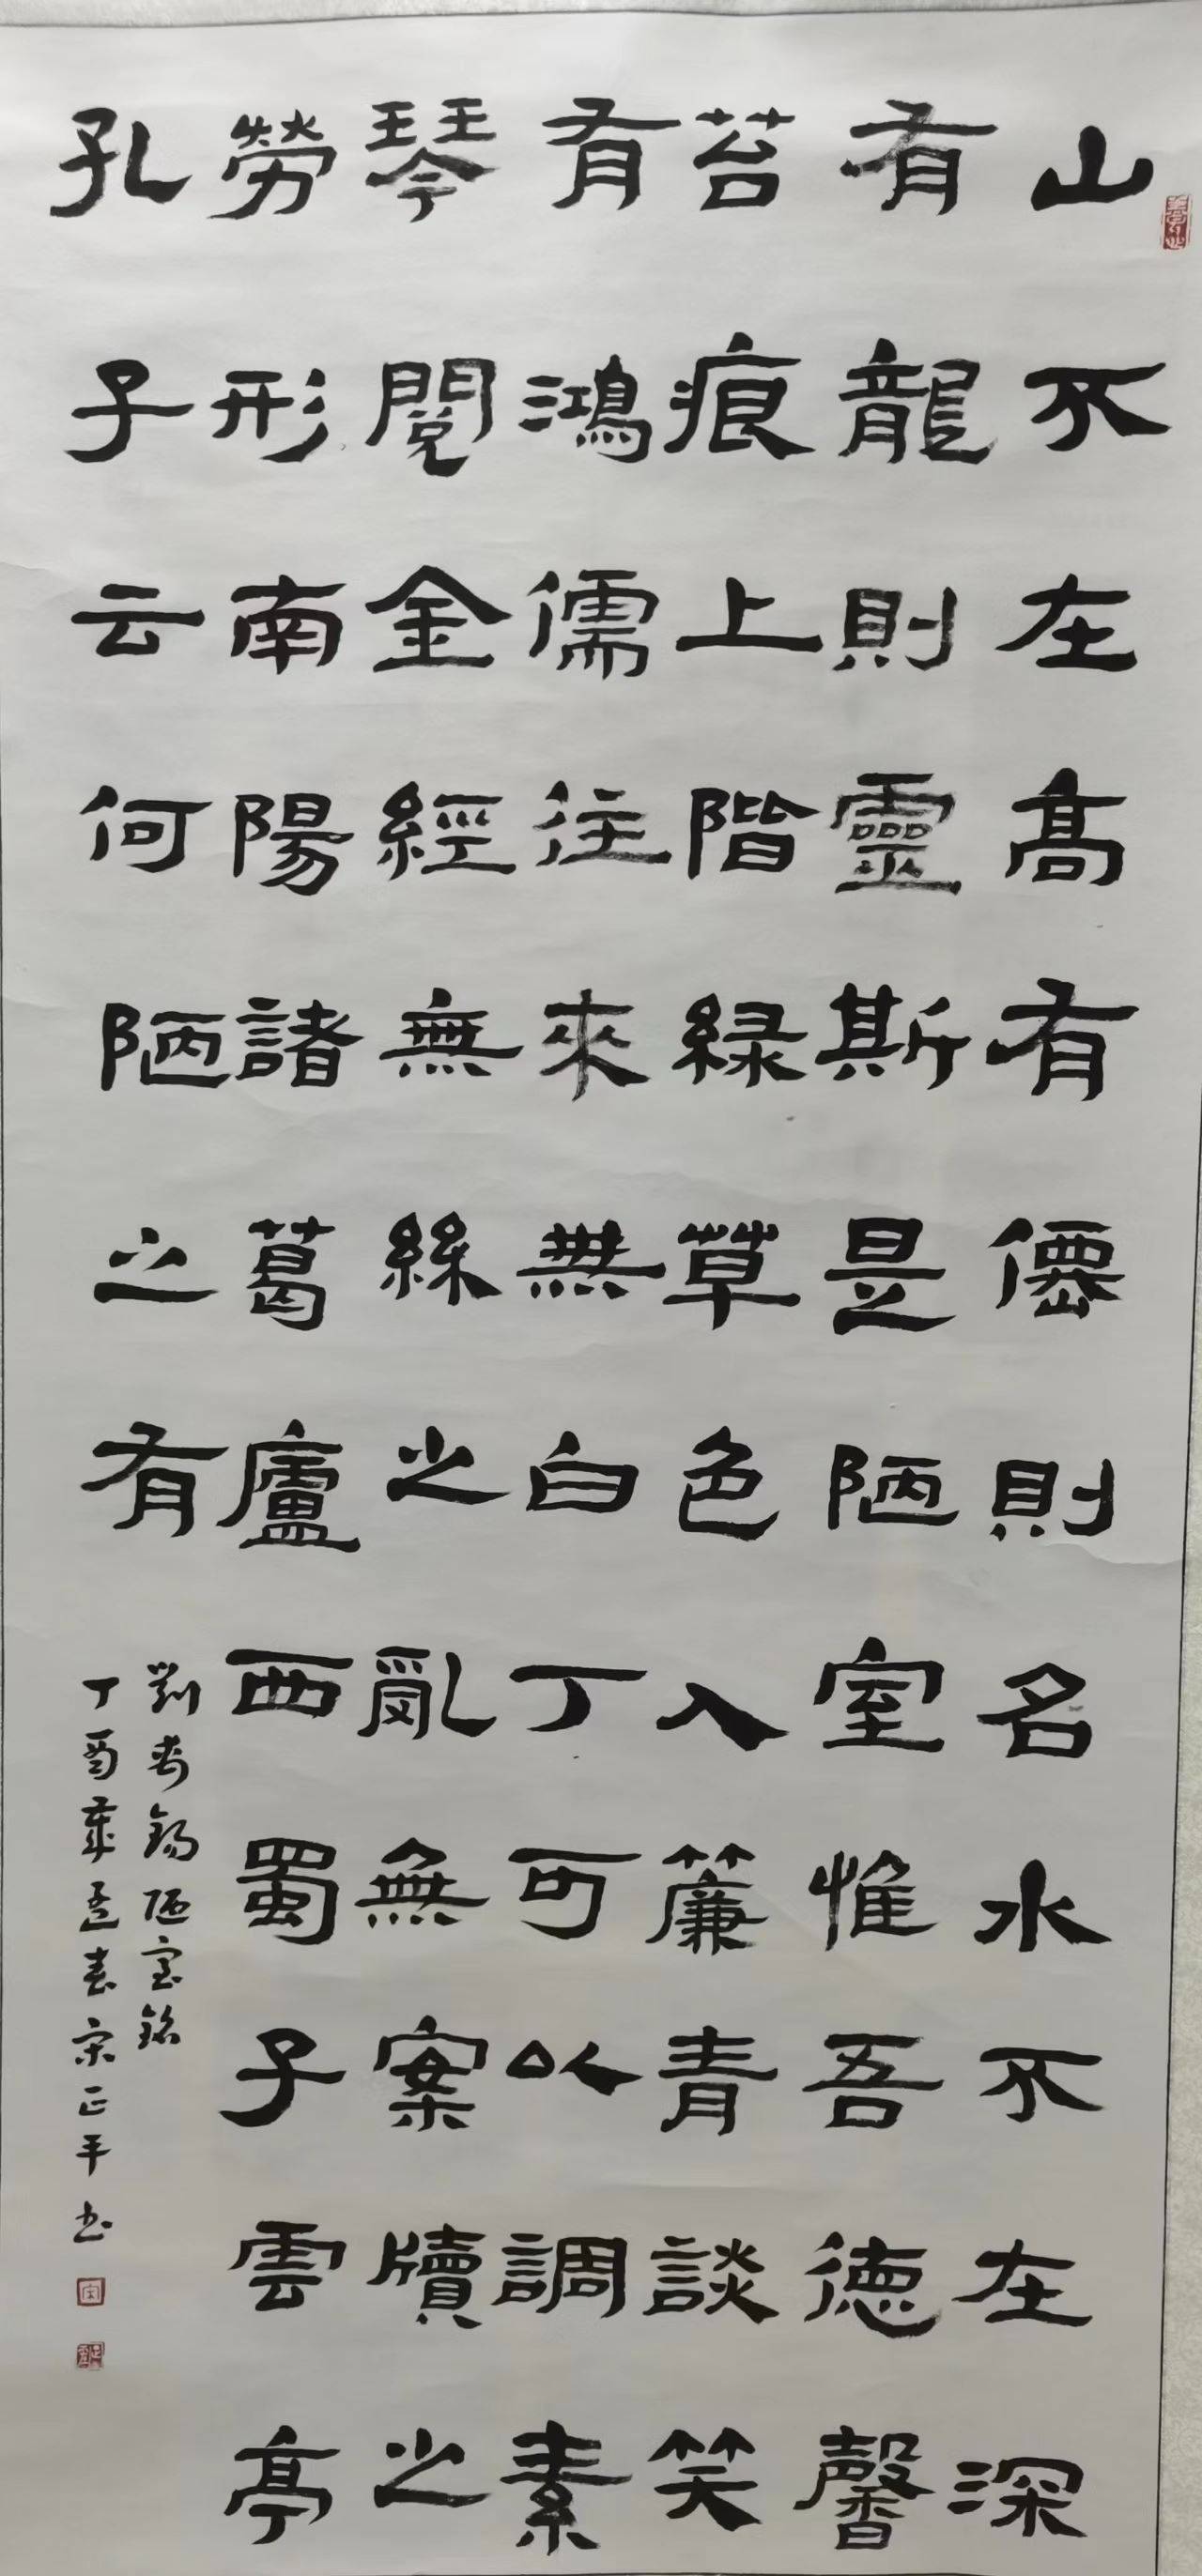 山不在高有僊則名水不在深
有龍則靈斯是陋室惟吾德馨
苔痕上階緑草色入簾青談笑
有鴻儒往來無白丁可以調素
琴閱金經無絲之亂無案牘之
勞形南陽諸葛廬西蜀子雲亭
孔子云何陋之有
劉禹錫陋室銘
丁酉年孟春宋正平书